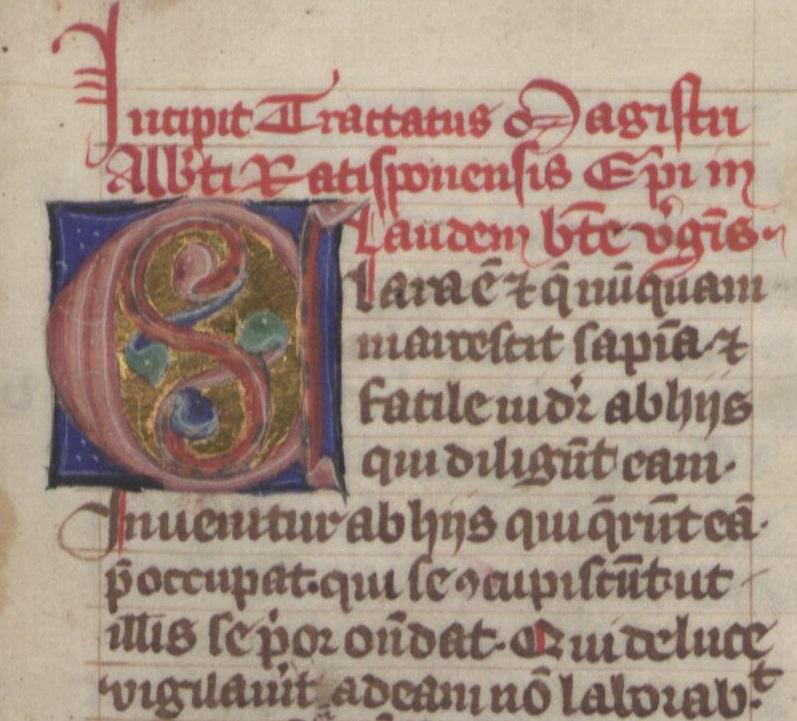 Incipit Tractatus Magistri
Alb'ti Ratisponensis Ep̄i in
Laudem bt̄e v'gīs.
Clara ē ⁊ q̄ nūquam
marcescit sapīa ⁊
facile uidr̄ ab hijs
qui diligūt eam.
Inuenitur ab hijs qui q̄rūt eā.
p̄occupat. qui se ꝯcupiscūt ut
illis se p'or on̄dat. Qui de luce
vigilau'it ad eam nō laborab.t